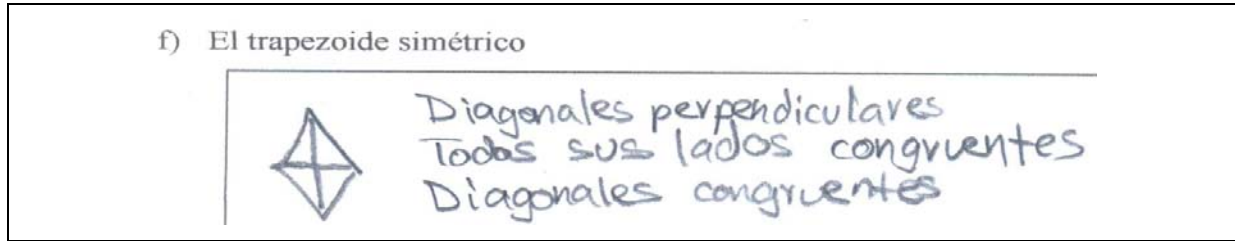 f) El trapezoide simétrico
Diagonales perpendiculares
Todos sus lados congruentes
Diagonales congruentes